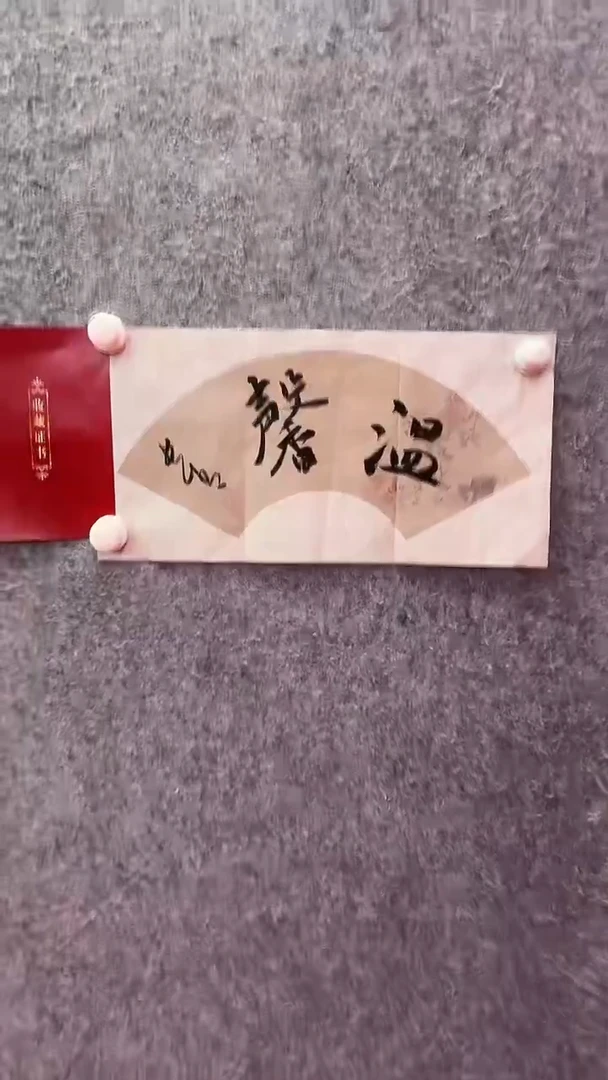 温馨
收藏证书